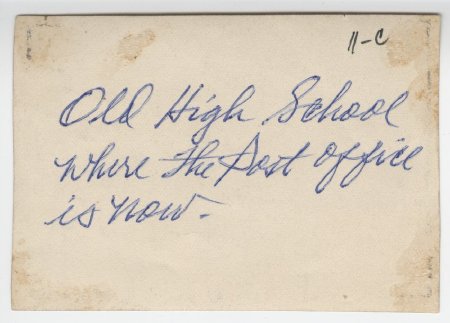 11-C
Old High School
where the Post Office
is now.